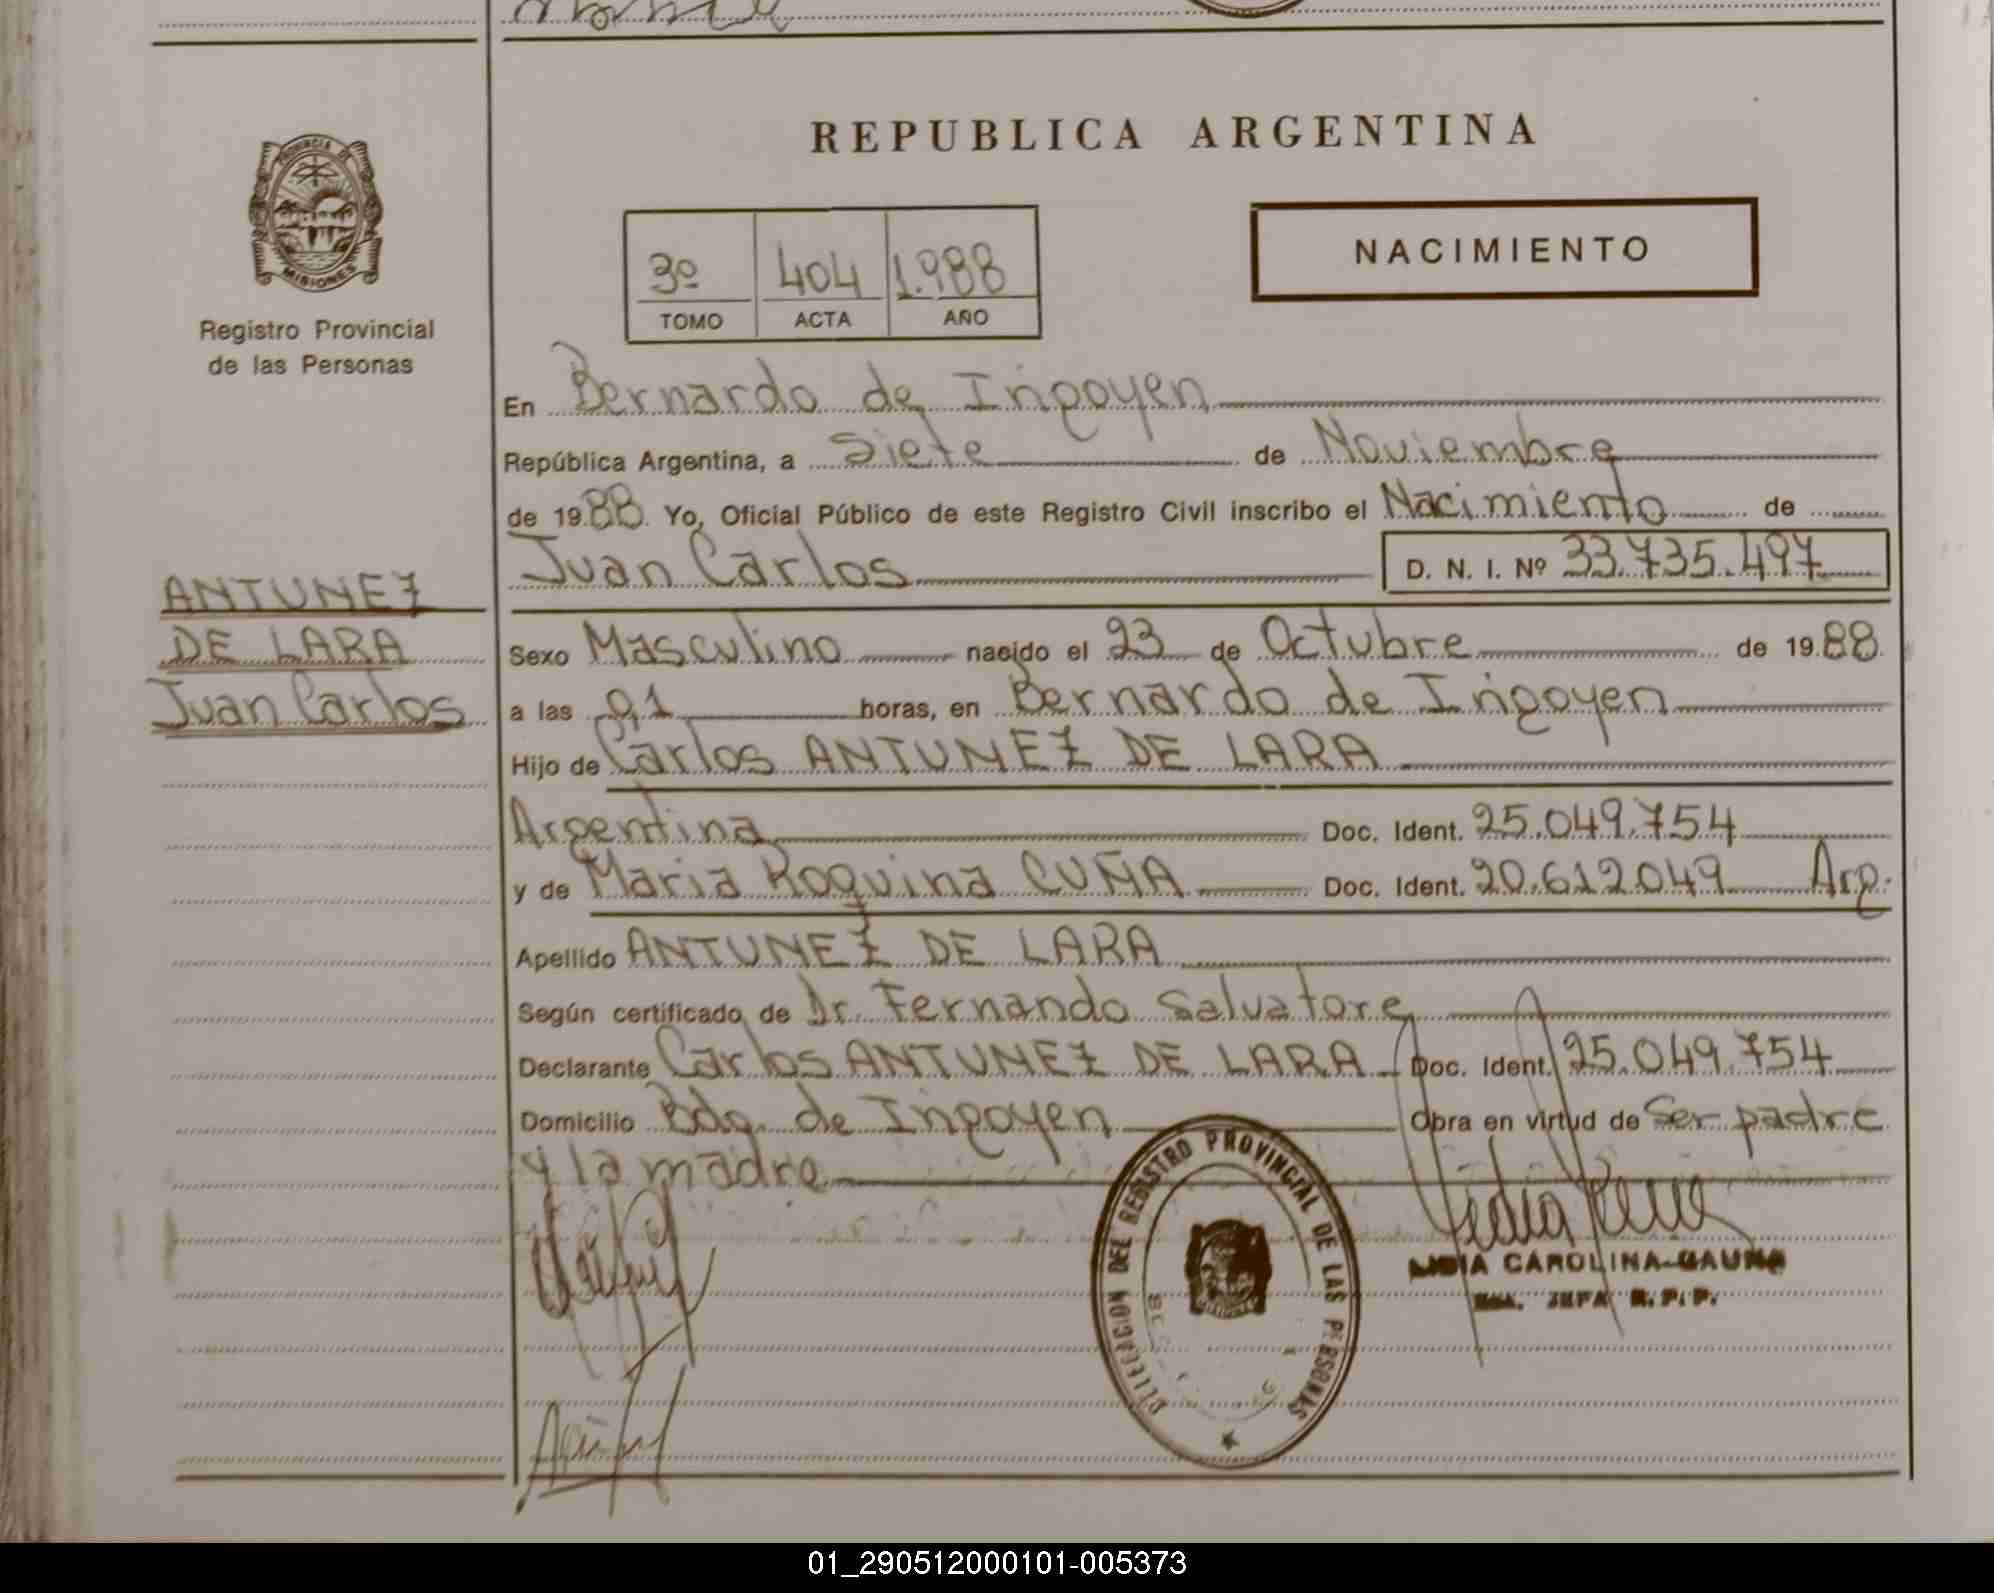 REPUBLICA ARGENTINA
PROVINCIA DE
MISIONES
Registro Provincial
de las Personas
3º 404 1.988
TOMO ACTA AÑO
NACIMIENTO
En Bernardo de Irigoyen
República Argentina, a siete de Noviembre
de 1988. Yo, Oficial Público de este Registro Civil inscribo el Nacimiento de
Juan Carlos D. N. I. Nº 33.735.497
ANTUNEZ
DE LARA
Juan Carlos
Sexo Masculino nacido el 23 de Octubre de 1988
a las 01 horas, en Bernardo de Irigoyen
Hijo de Carlos ANTUNEZ DE LARA
Argentina Doc. Ident. 25.049.754
y de Maria Roquina CUÑA Doc. Ident. 20.612.049 Arg.
Apellido ANTUNEZ DE LARA
Según certificado de Dr. Fernando Salvatore
Declarante Carlos ANTUNEZ DE LARA Doc. Ident. 25.049.754
Domicilio Bdo. de Irigoyen Obra en virtud de ser padre
y la madre
DELEGACION DEL REGISTRO PROVINCIAL DE LAS PERSONAS
MISIONES
LIDIA CAROLINA GAUNA
JEFA R.P.P.
01_290512000101-005373